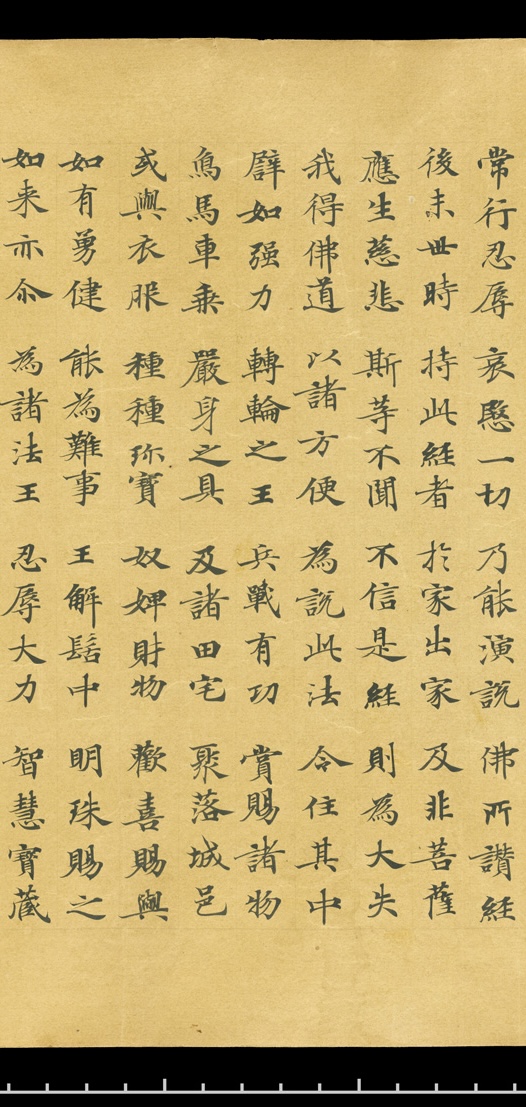 常行忍辱 哀愍一切 乃能演說 佛所讚經
後末世時 持此經者 於家出家 及非菩薩
應生慈悲 斯等不聞 不信是經 則為大失
我得佛道 以諸方便 為說此法 令住其中
譬如强力 轉輪之王 兵戰有功 賞賜諸物
鳥馬車乘 嚴身之具 及諸田宅 聚落城邑
或與衣服 種種珎寶 奴婢財物 歡喜賜與
如有勇健 能為難事 王解髻中 明珠賜之
如来亦尒 為諸法王 忍辱大力 智慧寶蔵